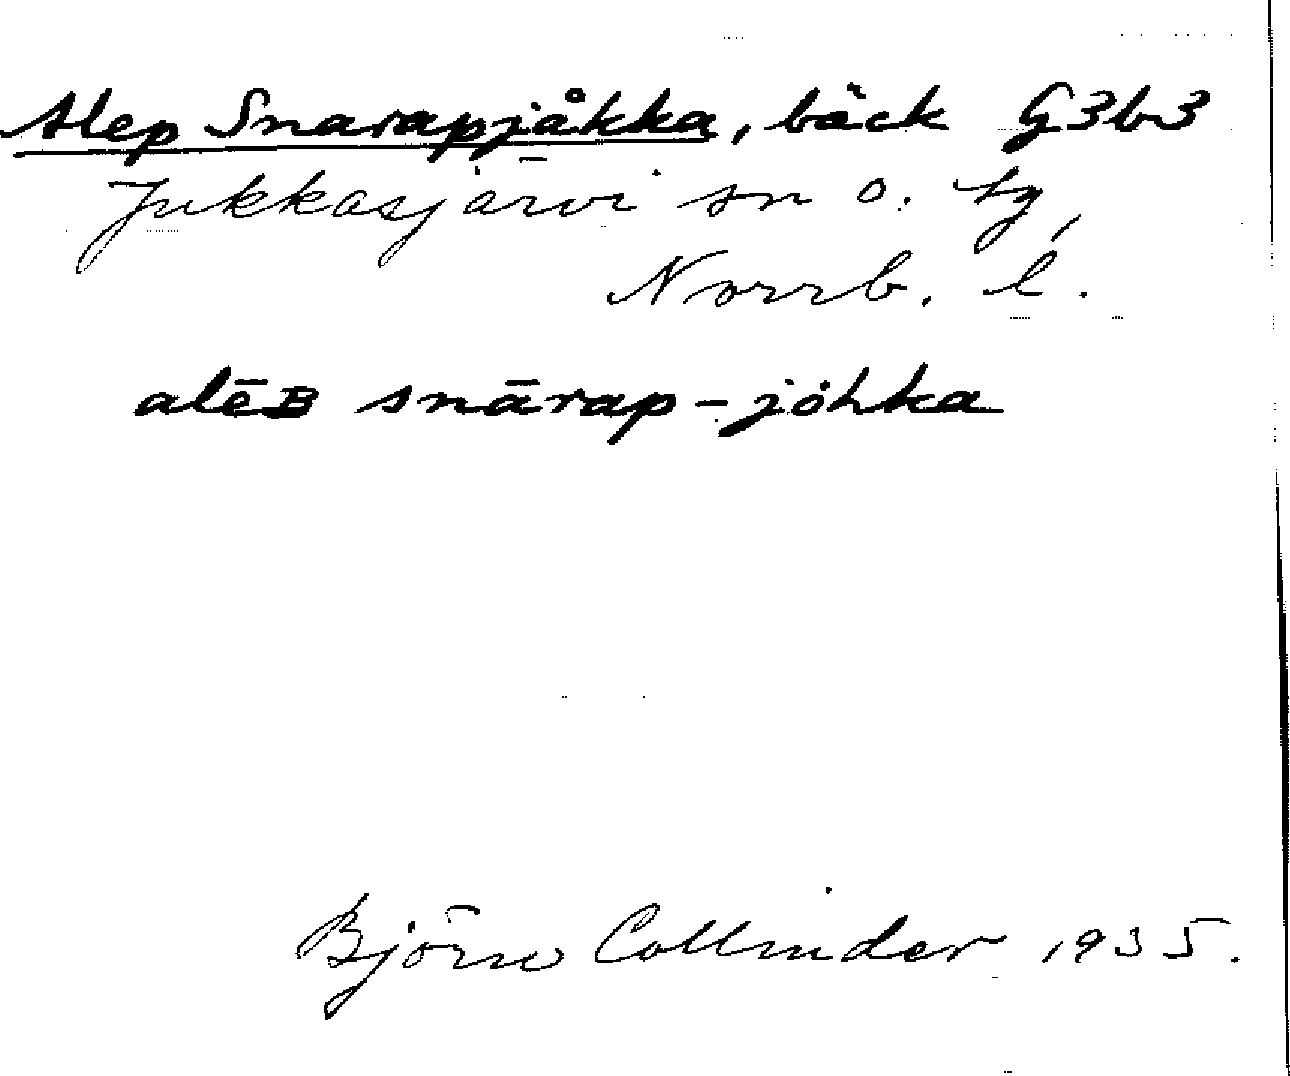 Alep Snarapjåkka, bäck G3b3
Jukkasjärvi sn o. tg,
Norrb. l.
alēʙ snārap-jȯhka
Björn Collinder 1935.